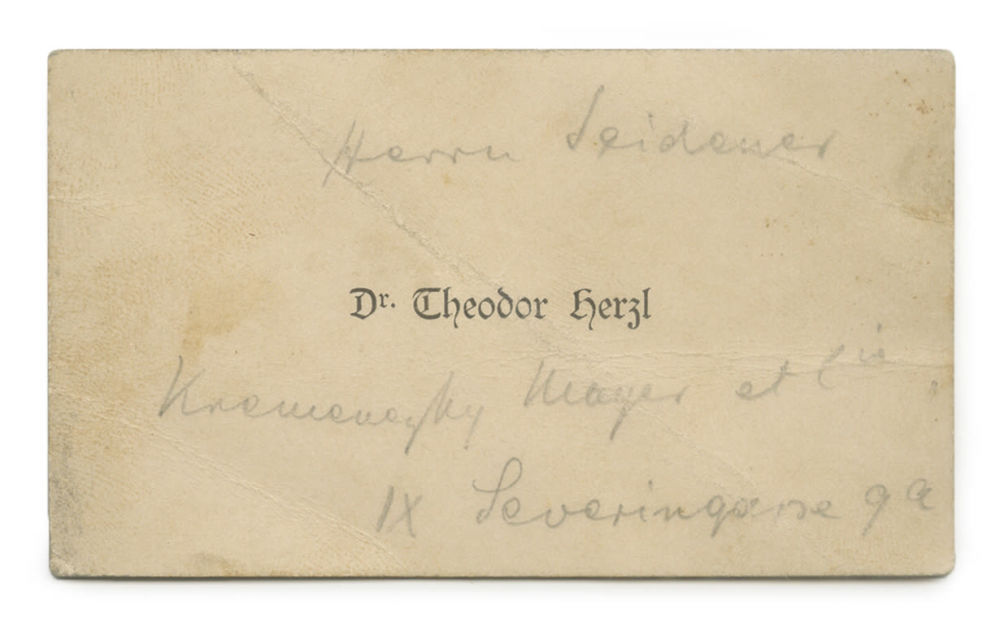 Herrn Seidener
Dr. Theodor Herzl
Kremenezky Mayer et Cie
IX Severingasse 9a